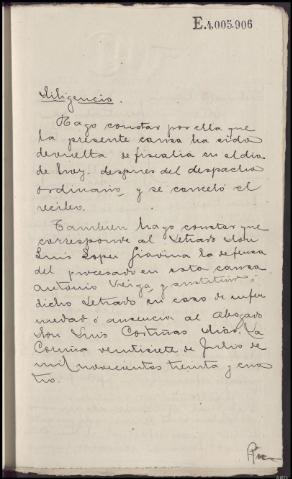 E.4,005,906
Diligencia.
Hago constar por ella que
la presente causa ha sido
devuelta de fiscalia en el dia
de hoy despues del despacho
ordinario, y se canceló el
recibo.
Tambien hago constar que
corresponde al Letrado Don
Luis Lopez la defensa
del procesado en esta causa
Antonio Veiga y sustituir á
dicho Letrado en caso de enfer
medad ó ausencia al Abogado
Don Luis Cortiñas La
Coruña veintisiete de Julio de
mil novecientos treinta y cua
tro.